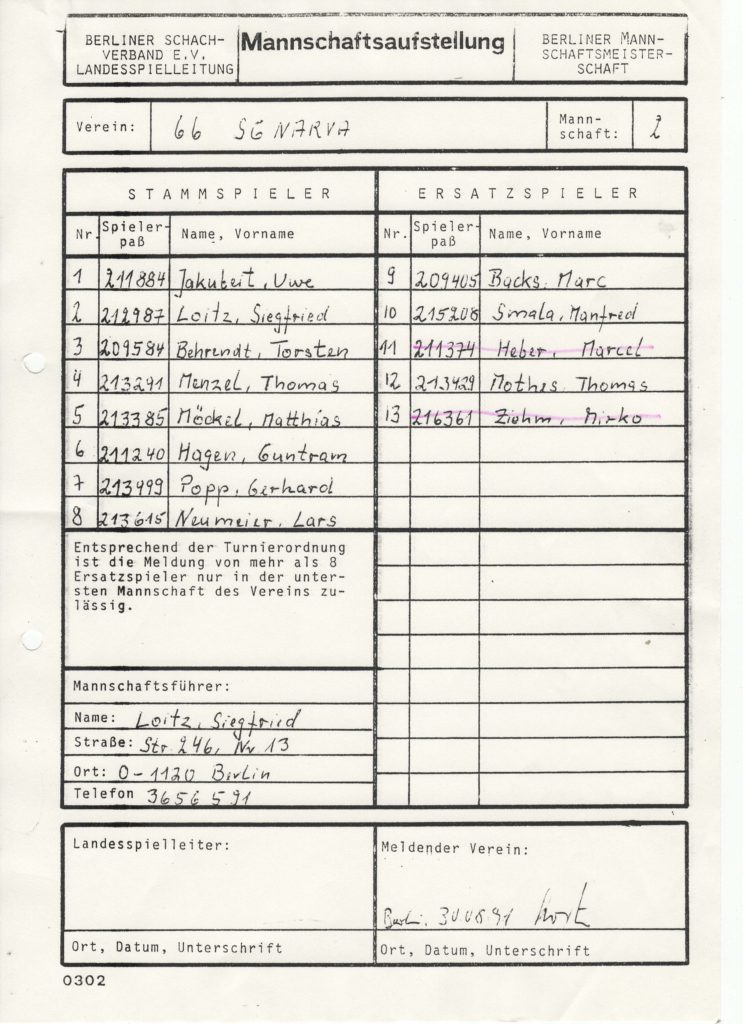 BERLINER SCHACH-
VERBAND E.V.
LANDESSPIELLEITUNG
Mannschaftsaufstellung
BERLINER MANN-
SCHAFTSMEISTER-
SCHAFT
Verein: 66 SG NARVA
Mann-
schaft: 2
STAMMSPIELER
Nr. Spieler-
paß Name, Vorname
1 211884 Jakubeit, Uwe
2 212987 Loitz, Siegfried
3 209584 Behrendt, Torsten
4 213291 Menzel, Thomas
5 213385 Möckel, Matthias
6 211240 Hagen, Guntram
7 213499 Popp, Gerhard
8 213615 Neumeier, Lars
ERSATZSPIELER
Nr. Spieler-
paß Name, Vorname
9 209405 Backs, Marc
10 215208 Smala, Manfred
11 211374 Heber, Marcel
12 213429 Mothes, Thomas
13 216361 Ziehm, Mirko
Entsprechend der Turnierordnung
ist die Meldung von mehr als 8
Ersatzspieler nur in der unter-
sten Mannschaft des Vereins zu-
lässig.
Mannschaftsführer:
Name: Loitz, Siegfried
Straße: Str. 246, Nr. 13
Ort: O-1120 Berlin
Telefon 3656591
Landesspielleiter:
Ort, Datum, Unterschrift
Meldender Verein:
Berlin, 30.08.91
Ort, Datum, Unterschrift
0302